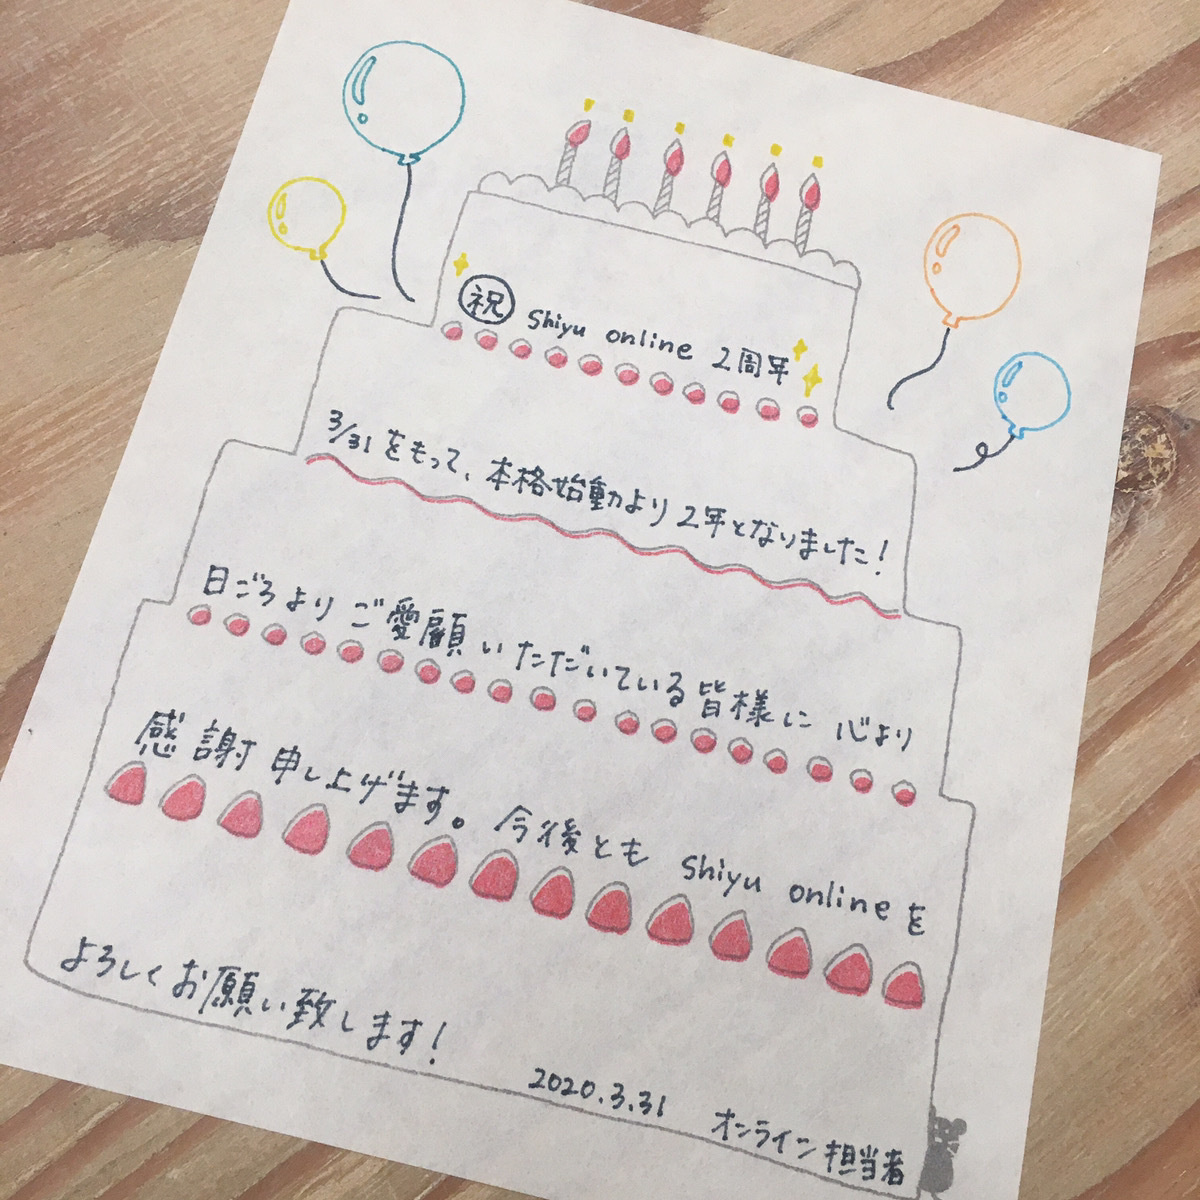 祝 Shiyu online 2周年
3/31をもって、本格始動より2年となりました!
日ごろよりご愛顧いただいている皆様に心より
感謝申し上げます。今後とも Shiyu onlineを
よろしくお願い致します!
2020.3.31 オンライン担当者